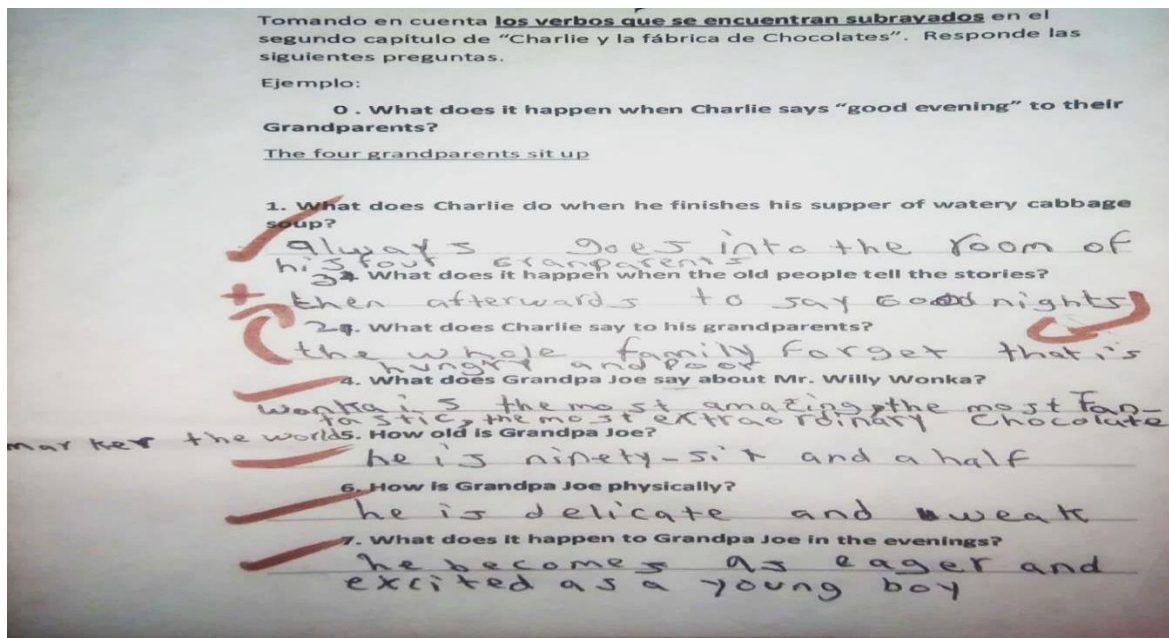 Tomando en cuenta los verbos que se encuentran subrayados en el
segundo capítulo de "Charlie y la fábrica de Chocolates". Responde las
siguientes preguntas.
Ejemplo:
0 . What does it happen when Charlie says "good evening" to their
Grandparents?
The four grandparents sit up
1. What does Charlie do when he finishes his supper of watery cabbage
soup?
always goes into the room of
his four granparents
3 What does it happen when the old people tell the stories?
then afterwards to say Good nights
2 . What does Charlie say to his grandparents?
the whole family forget that is
hungry and poor
4. What does Grandpa Joe say about Mr. Willy Wonka?
Wonka is the most amazing, the most fan-
tastic, the most extraordinary Chocolate
marker the world
5. How old is Grandpa Joe?
he is ninety-six and a half
6. How is Grandpa Joe physically?
he is delicate and weak
7. What does it happen to Grandpa Joe in the evenings?
he becomes as eager and
excited as a young boy